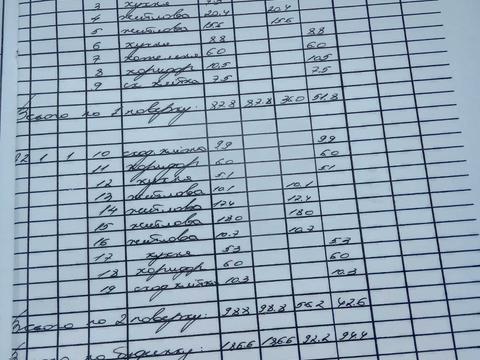 3 кухня
4 житлова 20.4 20.4
5 житлова 15.6 15.6
6 кухня 8.8 8.8
7 6.0 6.0
8 коридор 10.5 10.5
9 7.5 7.5
Всього по 1 поверху: 87.8 87.8 36.0 51.8
1 1 10 9.9 9.9
11 коридор 6.0 6.0
12 кухня 5.1 5.1
13 житлова 10.1 10.1
14 житлова 12.4 12.4
15 житлова 18.0 18.0
16 житлова
17 кухня 5.3 5.3
18 коридор 6.0 6.0
19 сход. клітка 10.3 10.3
Всього по 2 поверху: 98.8 98.8 56.2 42.6
по будинку: 186.6 186.6 92.2 94.4